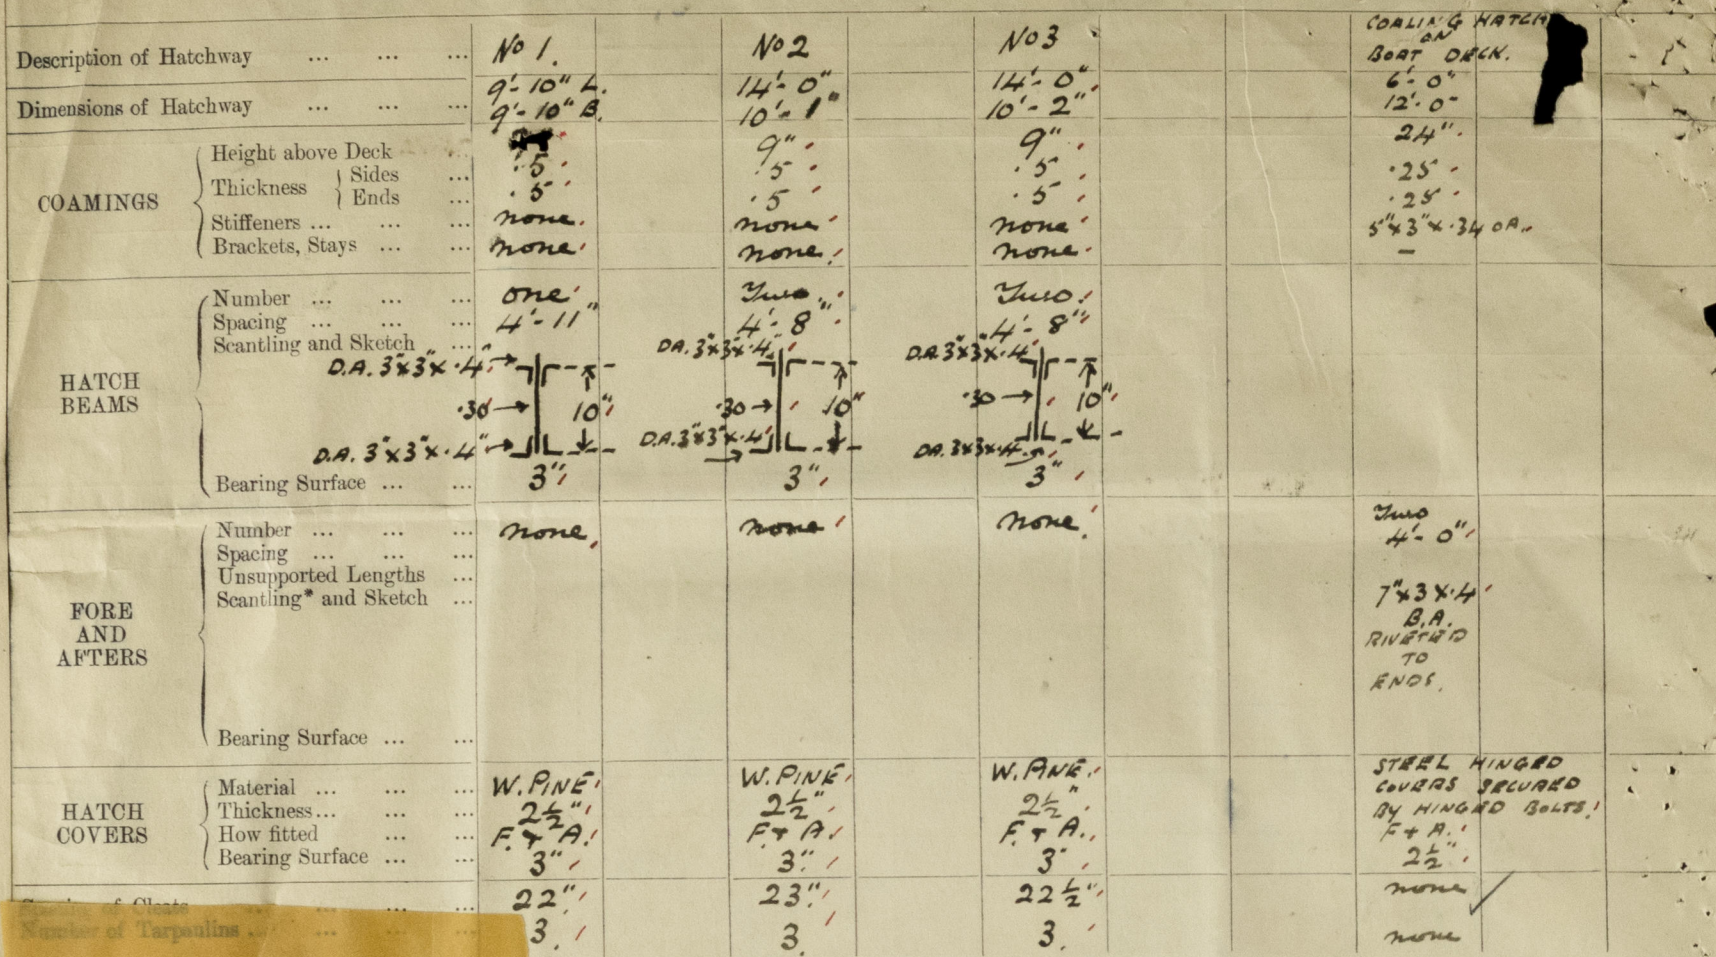 Description of Hatchway ... ... ... No 1. No 2 No 3 COALING HATCH
ON
BOAT DECK.
Dimensions of Hatchway ... ... ... 9'-10" L. 14'-0" 14'-0" 6'-0"
9'-10" B. 10'-1" 10'-2" 12'-0"
COAMINGS
Height above Deck ... 9" 9" 24"
Thickness Sides ... .5 .5 .5 .25
Ends ... .5 .5 .5 .25
Stiffeners ... ... ... none. none none 5"x3"x.34 OA.
Brackets, Stays ... ... none none. none –
HATCH BEAMS
Number ... ... ... one Two. Two.
Spacing ... ... ... 4'-11" 4'-8" 4'-8"
Scantling and Sketch ...
D.A. 3"x3"x.4" D.A. 3"x3"x.4" D.A. 3"x3"x.4"
.30 10" .30 10" .30 10"
D.A. 3"x3"x.4" D.A. 3"x3"x.4" D.A. 3x3x.4
Bearing Surface ... ... 3" 3" 3"
FORE AND AFTERS
Number ... ... ... none. none none. Two
Spacing ... ... ... 4'-0"
Unsupported Lengths ...
Scantling* and Sketch ... 7"x3x.4
B.A.
RIVETED
TO
ENDS.
Bearing Surface ... ...
HATCH COVERS
Material ... ... ... W. PINE W. PINE W. PINE. STEEL HINGED
COVERS SECURED
BY HINGED BOLTS
Thickness... ... ... 2½" 2½" 2½"
How fitted ... ... F. & A. F. & A. F. & A. F & A.
Bearing Surface ... ... 3" 3" 3" 2½"
Spacing of Cleats ... ... ... 22" 23" 22½" none
Number of Tarpaulins ... ... ... 3. 3. 3. none